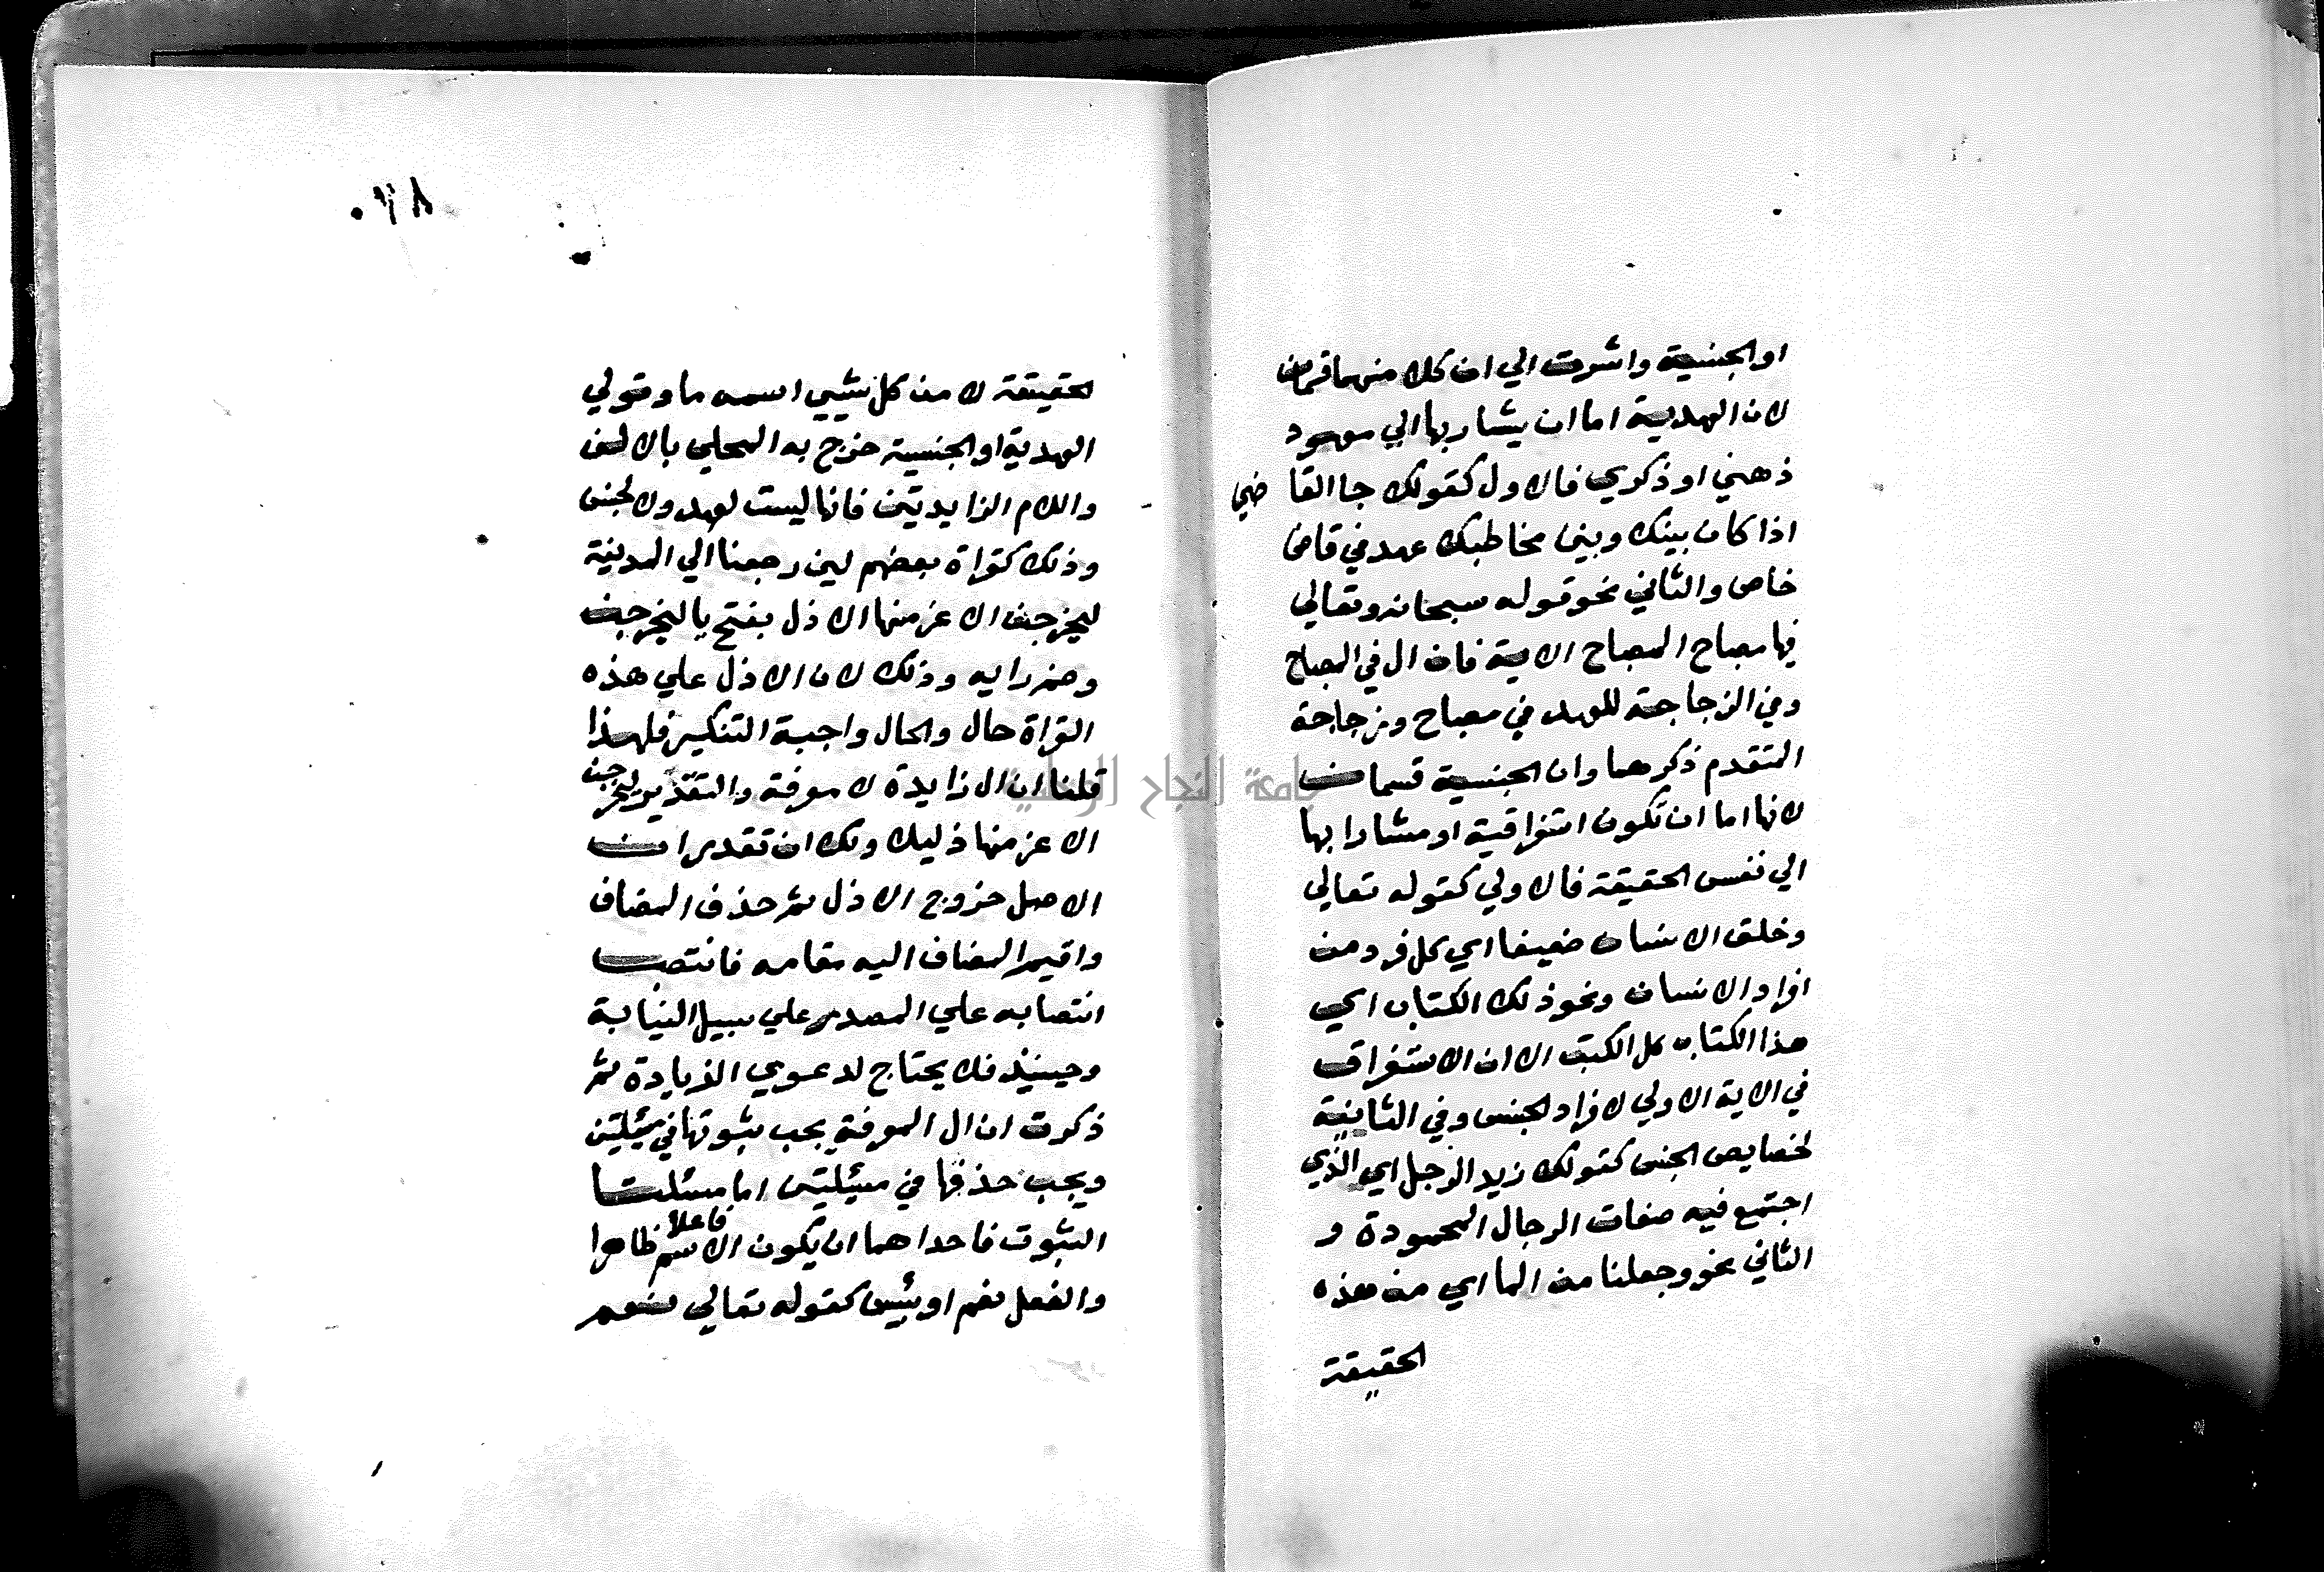 او الجنسية واشرت الي ان كلا منهما قسمان
لان العهدية اما ان يشار بها الي معهود
ذهني او ذكري فالاول كقولك جا القا ضي
اذا كان بينك وبين مخاطبك عهد في قاض
خاص والثاني نحو قوله سبحانه وتعالي
فيها مصباح المصباح الاية فان ال في المصباح
وفي الزجاجة للعهد في مصباح وزجاجة
المتقدم ذكرهما وان الجنسية قسمان
لانها اما ان تكون استغراقية او مشارا بها
الي نفس الحقيقة فالاولي كقوله تعالي
وخلق الانسان ضعيفا اي كل فرد من
افراد الانسان ونحو ذلك الكتاب اي
هذا الكتاب كل الكتب الا ان الاستغراق
في الاية الاولي لافراد الجنس وفي الثانية
لخصايص الجنس كقولك زيد الرجل اي الذي
اجتمع فيه صفات الرجال المحمودة و
الثاني نحو وجعلنا من الما اي من هذه
الحقيقة
٠٢٨
الحقيقة لا من كل شيي اسمه ما وقولي
العهدية او الجنسية خرج به المحلي بالالف
واللام الزايدتين فانها ليست لعهد ولا لجنس
وذلك كقراة بعضهم لين رجعنا الي المدينة
ليخرجن الاعز منها الاذل بفتح يا ليخرجن
وضم رايه وذلك لان الاذل علي هذه
القراة حال والحال واجبة التنكير فلهذا
قلنا ان ال زايدة لا معرفة والتقدير ليخرجن
الاعز منها ذليلا ولك ان تقدر ان
الاصل خروج الاذل ثم حذف المضاف
واقيم المضاف اليه مقامه فانتصب
انتصابه علي المصدر علي سبيل النيابة
وحينيذ فلا يحتاج لدعوي الزيادة ثم
ذكرت ان ال المعرفة يجب ثبوتها في مسئلتين
ويجب حذفها في مسئلتين اما مسئلتا
الثبوت فاحداهما ان يكون الاسم فاعلا ظاهرا
والفعل نعم او بئس كقوله تعالي نعم
جامعة النجاح الوطنية